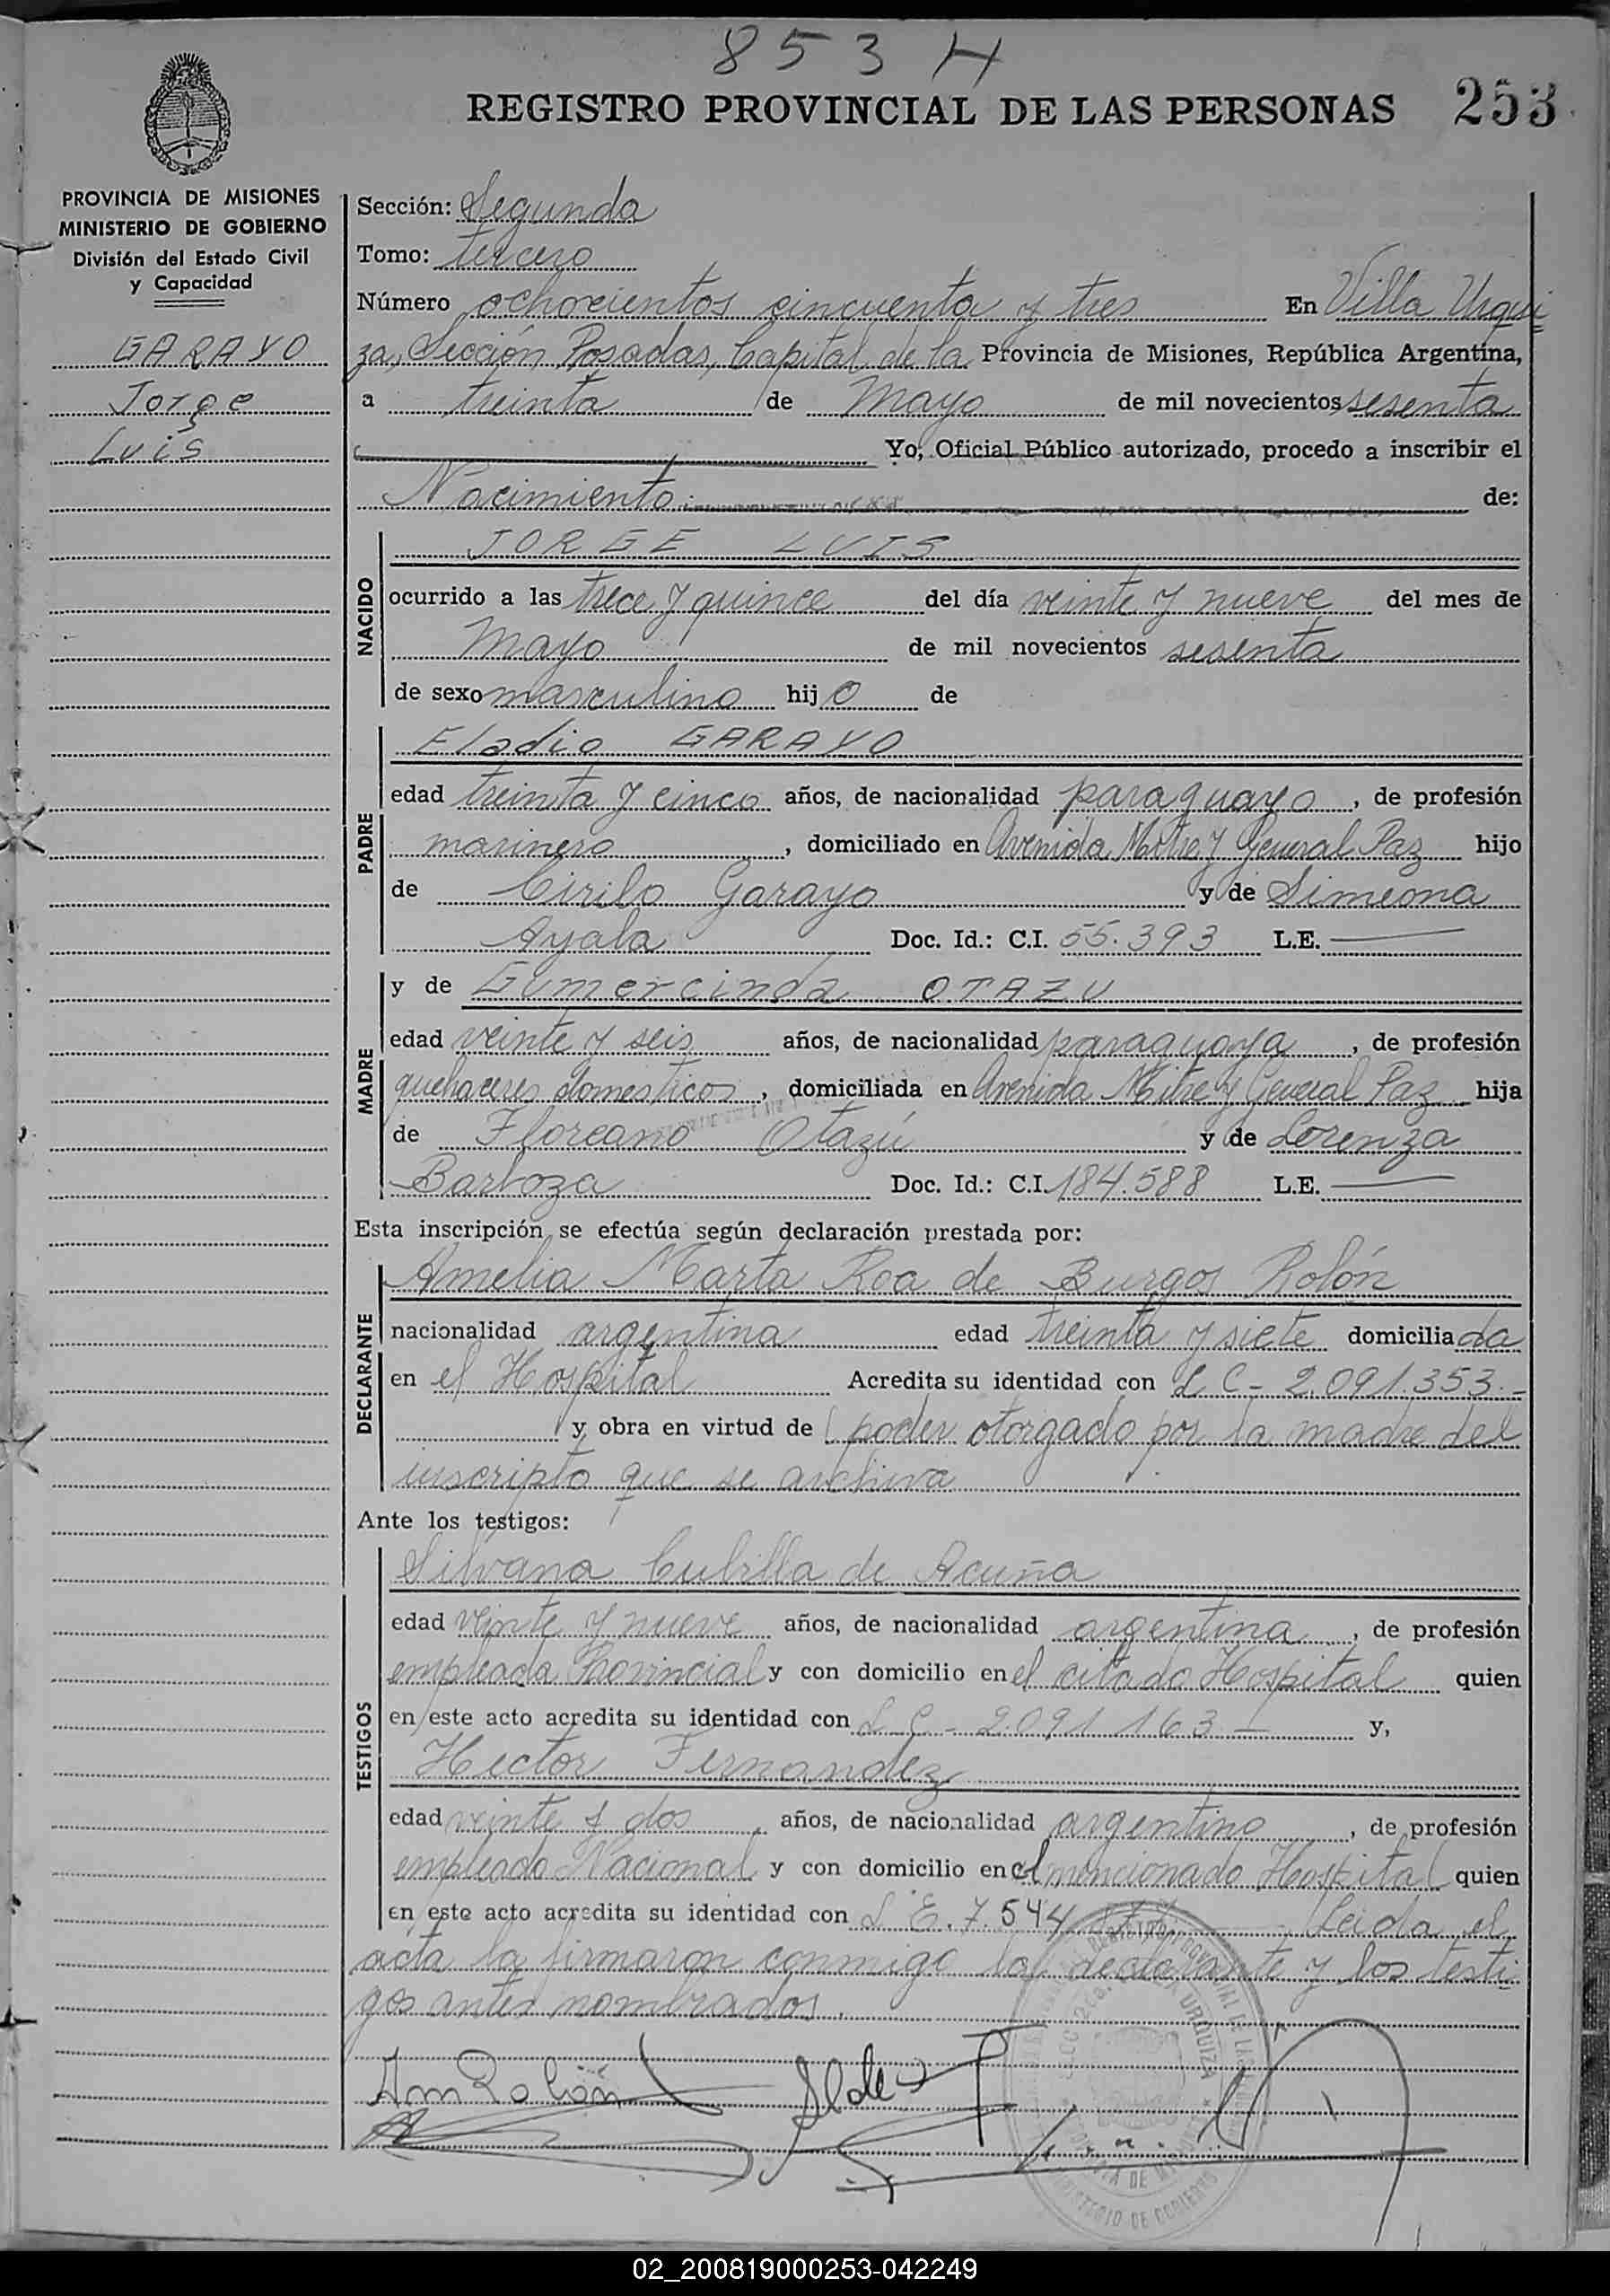 853 H
REGISTRO PROVINCIAL DE LAS PERSONAS 253
PROVINCIA DE MISIONES
MINISTERIO DE GOBIERNO
División del Estado Civil
y Capacidad
GARAYO
Jorge
Luis
Sección: Segunda
Tomo: tercero
Número ochocientos cincuenta y tres En Villa Urqui
za, Sección Posadas, Capital de la Provincia de Misiones, República Argentina,
a treinta de Mayo de mil novecientos sesenta
Yo, Oficial Público autorizado, procedo a inscribir el
Nacimiento de:
NACIDO
JORGE LUIS
ocurrido a las trece y quince del día veinte y nueve del mes de
Mayo de mil novecientos sesenta
de sexo masculino hijo de
PADRE
Eladio GARAYO
edad treinta y cinco años, de nacionalidad paraguayo, de profesión
marinero, domiciliado en Avenida Mitre y General Paz hijo
de Cirilo Garayo y de Simeona
Ayala Doc. Id.: C.I. 55.393 L.E. —
MADRE
y de Gumercinda OTAZU
edad veinte y seis años, de nacionalidad paraguaya, de profesión
quehaceres domesticos, domiciliada en Avenida Mitre y General Paz hija
de Floreano Otazú y de Lorenza
Barboza Doc. Id.: C.I. 184.588 L.E. —
Esta inscripción se efectúa según declaración prestada por:
DECLARANTE
Amelia Marta Roa de Burgos Rolón
nacionalidad argentina edad treinta y siete domiciliada
en el Hospital Acredita su identidad con L C - 2.091.353.-
y obra en virtud de poder otorgado por la madre del
inscripto que se archiva
Ante los testigos:
TESTIGOS
Silvana Cubilla de Acuña
edad veinte y nueve años, de nacionalidad argentina, de profesión
empleada Provincial y con domicilio en el citado Hospital quien
en este acto acredita su identidad con L C - 2.091.163 - y,
Hector Fernandez
edad veinte y dos años, de nacionalidad argentino, de profesión
empleado Nacional y con domicilio en el mencionado Hospital quien
en este acto acredita su identidad con L E. 7.544. Leida el
acta la firmaron conmigo la declarante y los testi
gos antes nombrados.
Am Rolón
02_200819000253-042249